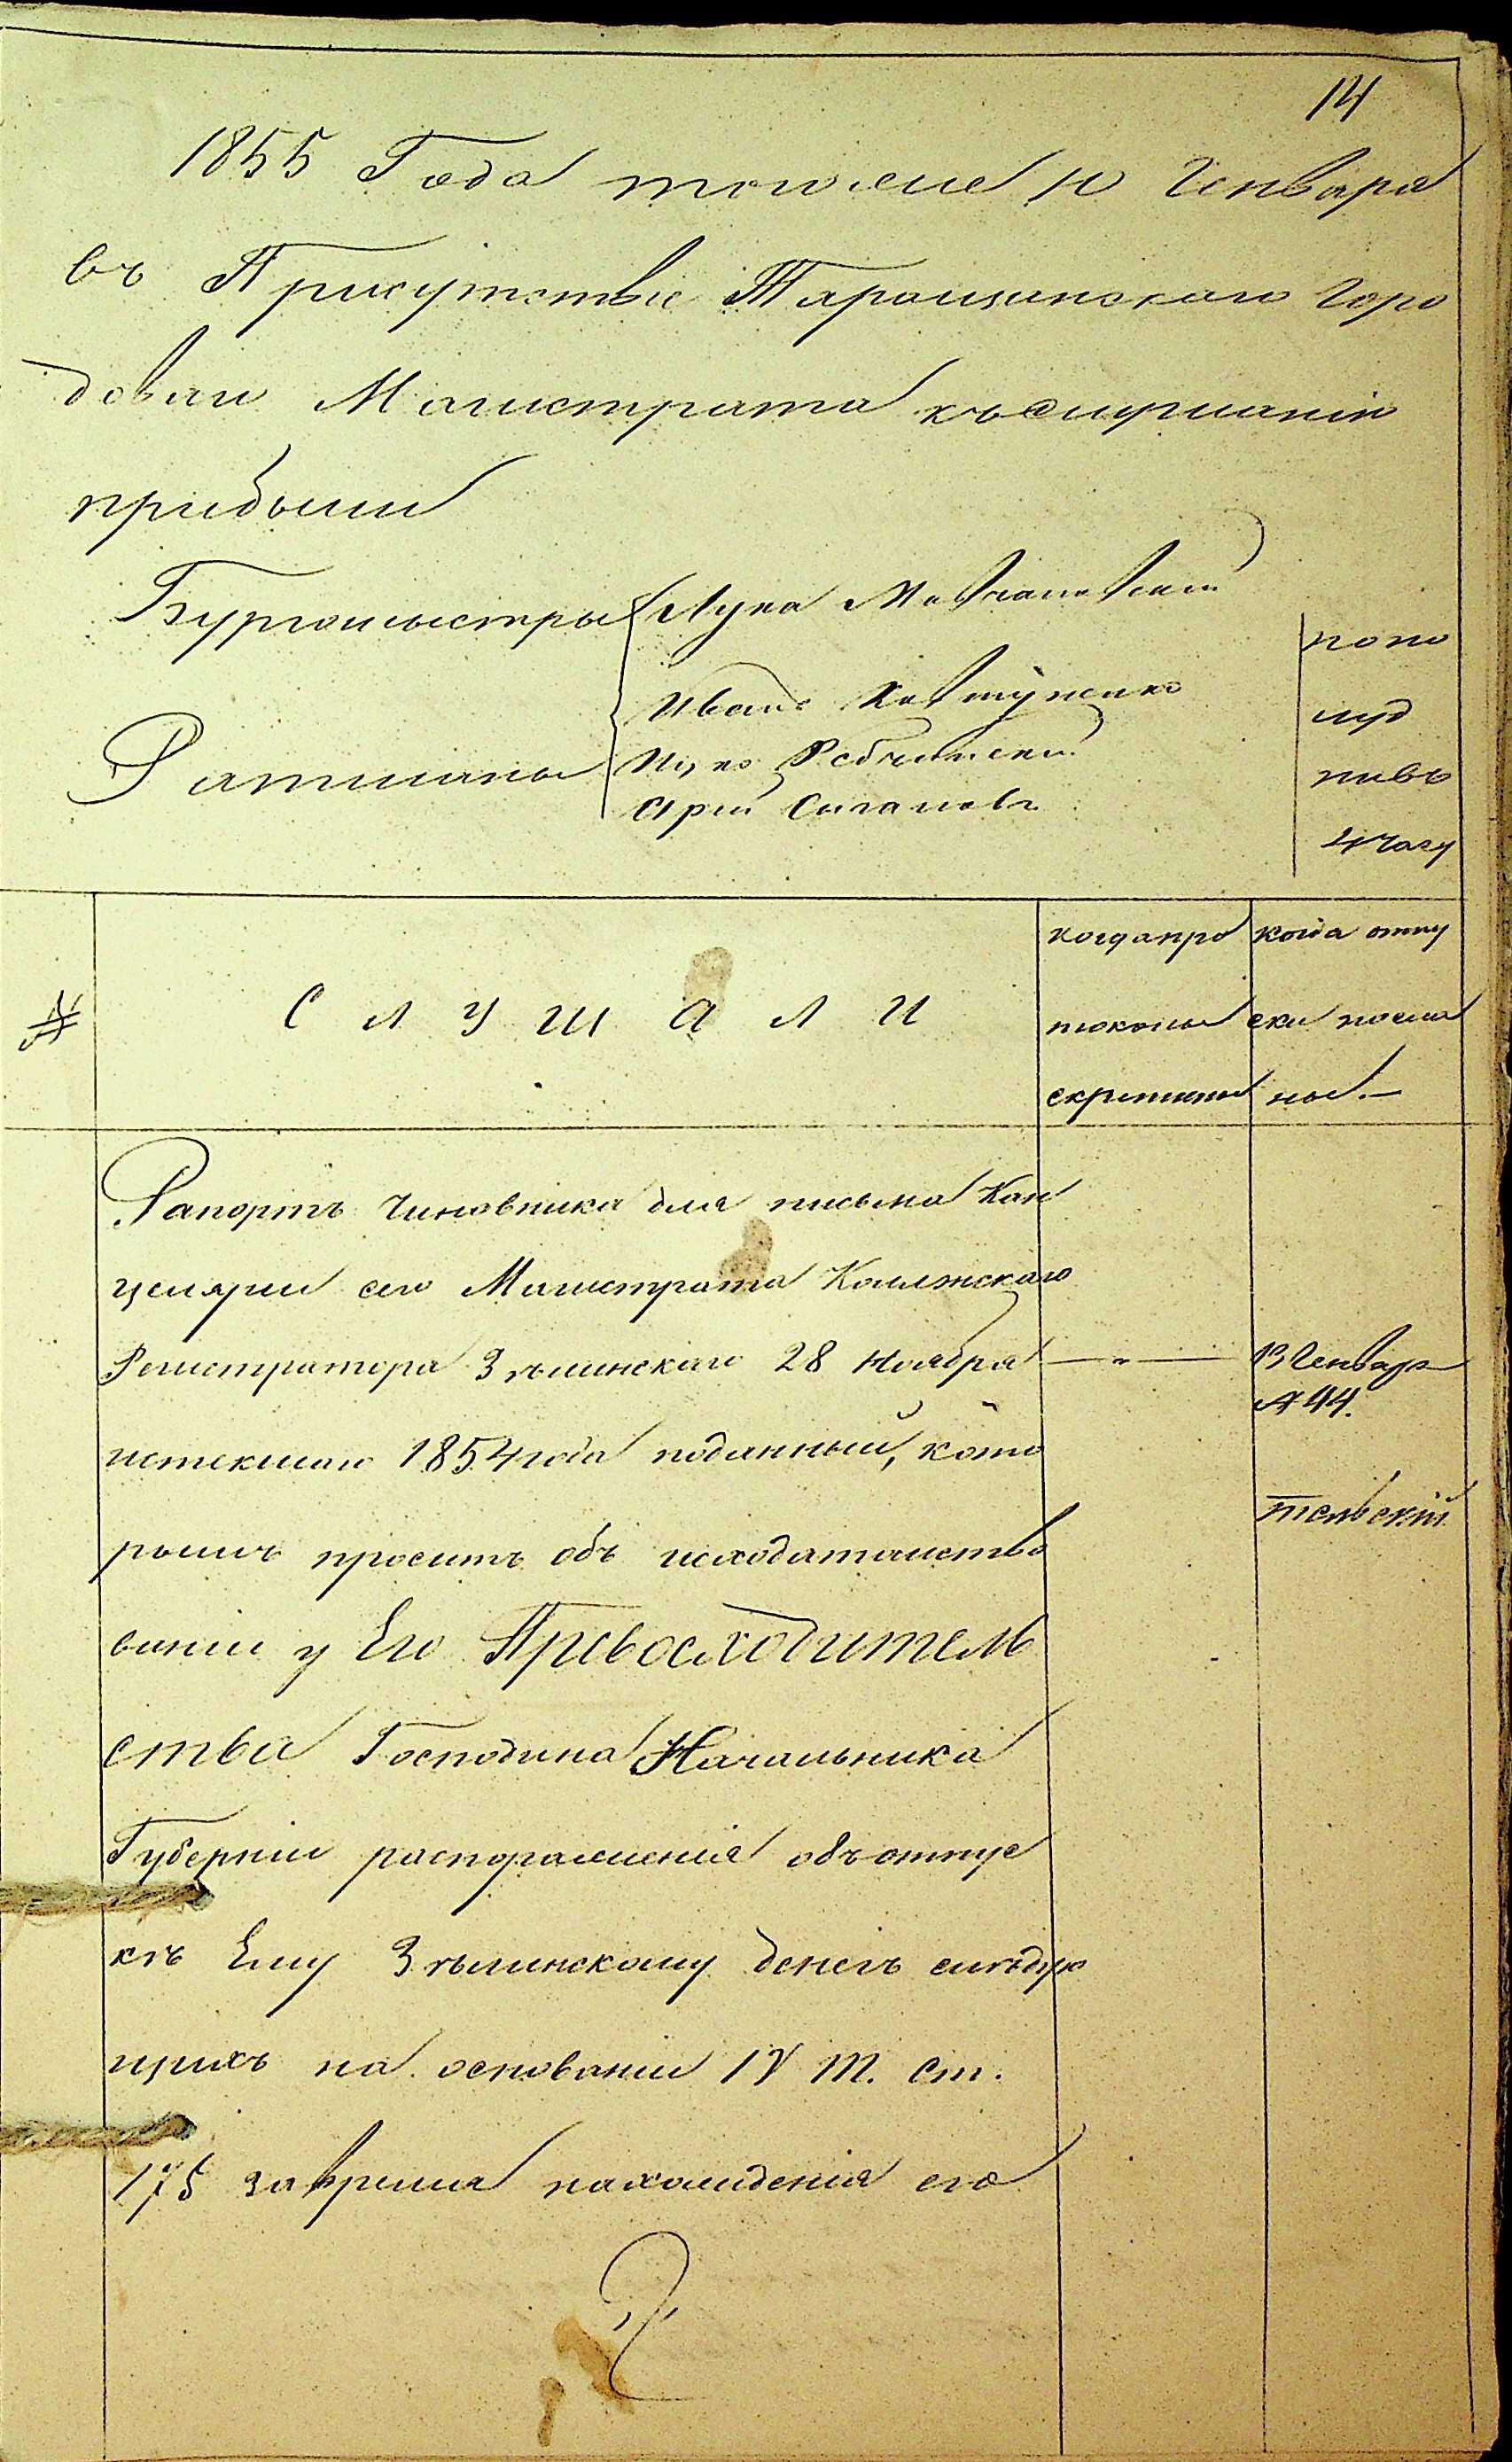 14
1855 Года тогоже 10 Генваря
въ Присутствіе Таращанскаго Горо
доваго Магистрата къ слушанію
прибыли
Бургомыстры Лука
Иванъ Ковтуненко
Ратманы
попо
луд
нивъ
4 часу
№
С Л У Ш А Л И
когда про
токолы
скреплены
когда отпу
ски посла
ны.—
Рапортъ Чиновника для письма Кан
целяріи сего Магистрата Колежскаго
Регистратора Зѣлинскаго 28 Ноября
истекшаго 1854 года поданный, кото
рымъ проситъ объ исходатайство
ваніи у Его Превосходитель
ства Господина Начальника
Губерніи распоряженія объ отпус
кѣ Ему Зѣлинскому денегъ слѣдую
щихъ на основаніи IV Т. Ст.
175 за время нахожденія его
— " —
13 Генваря
№ 44.